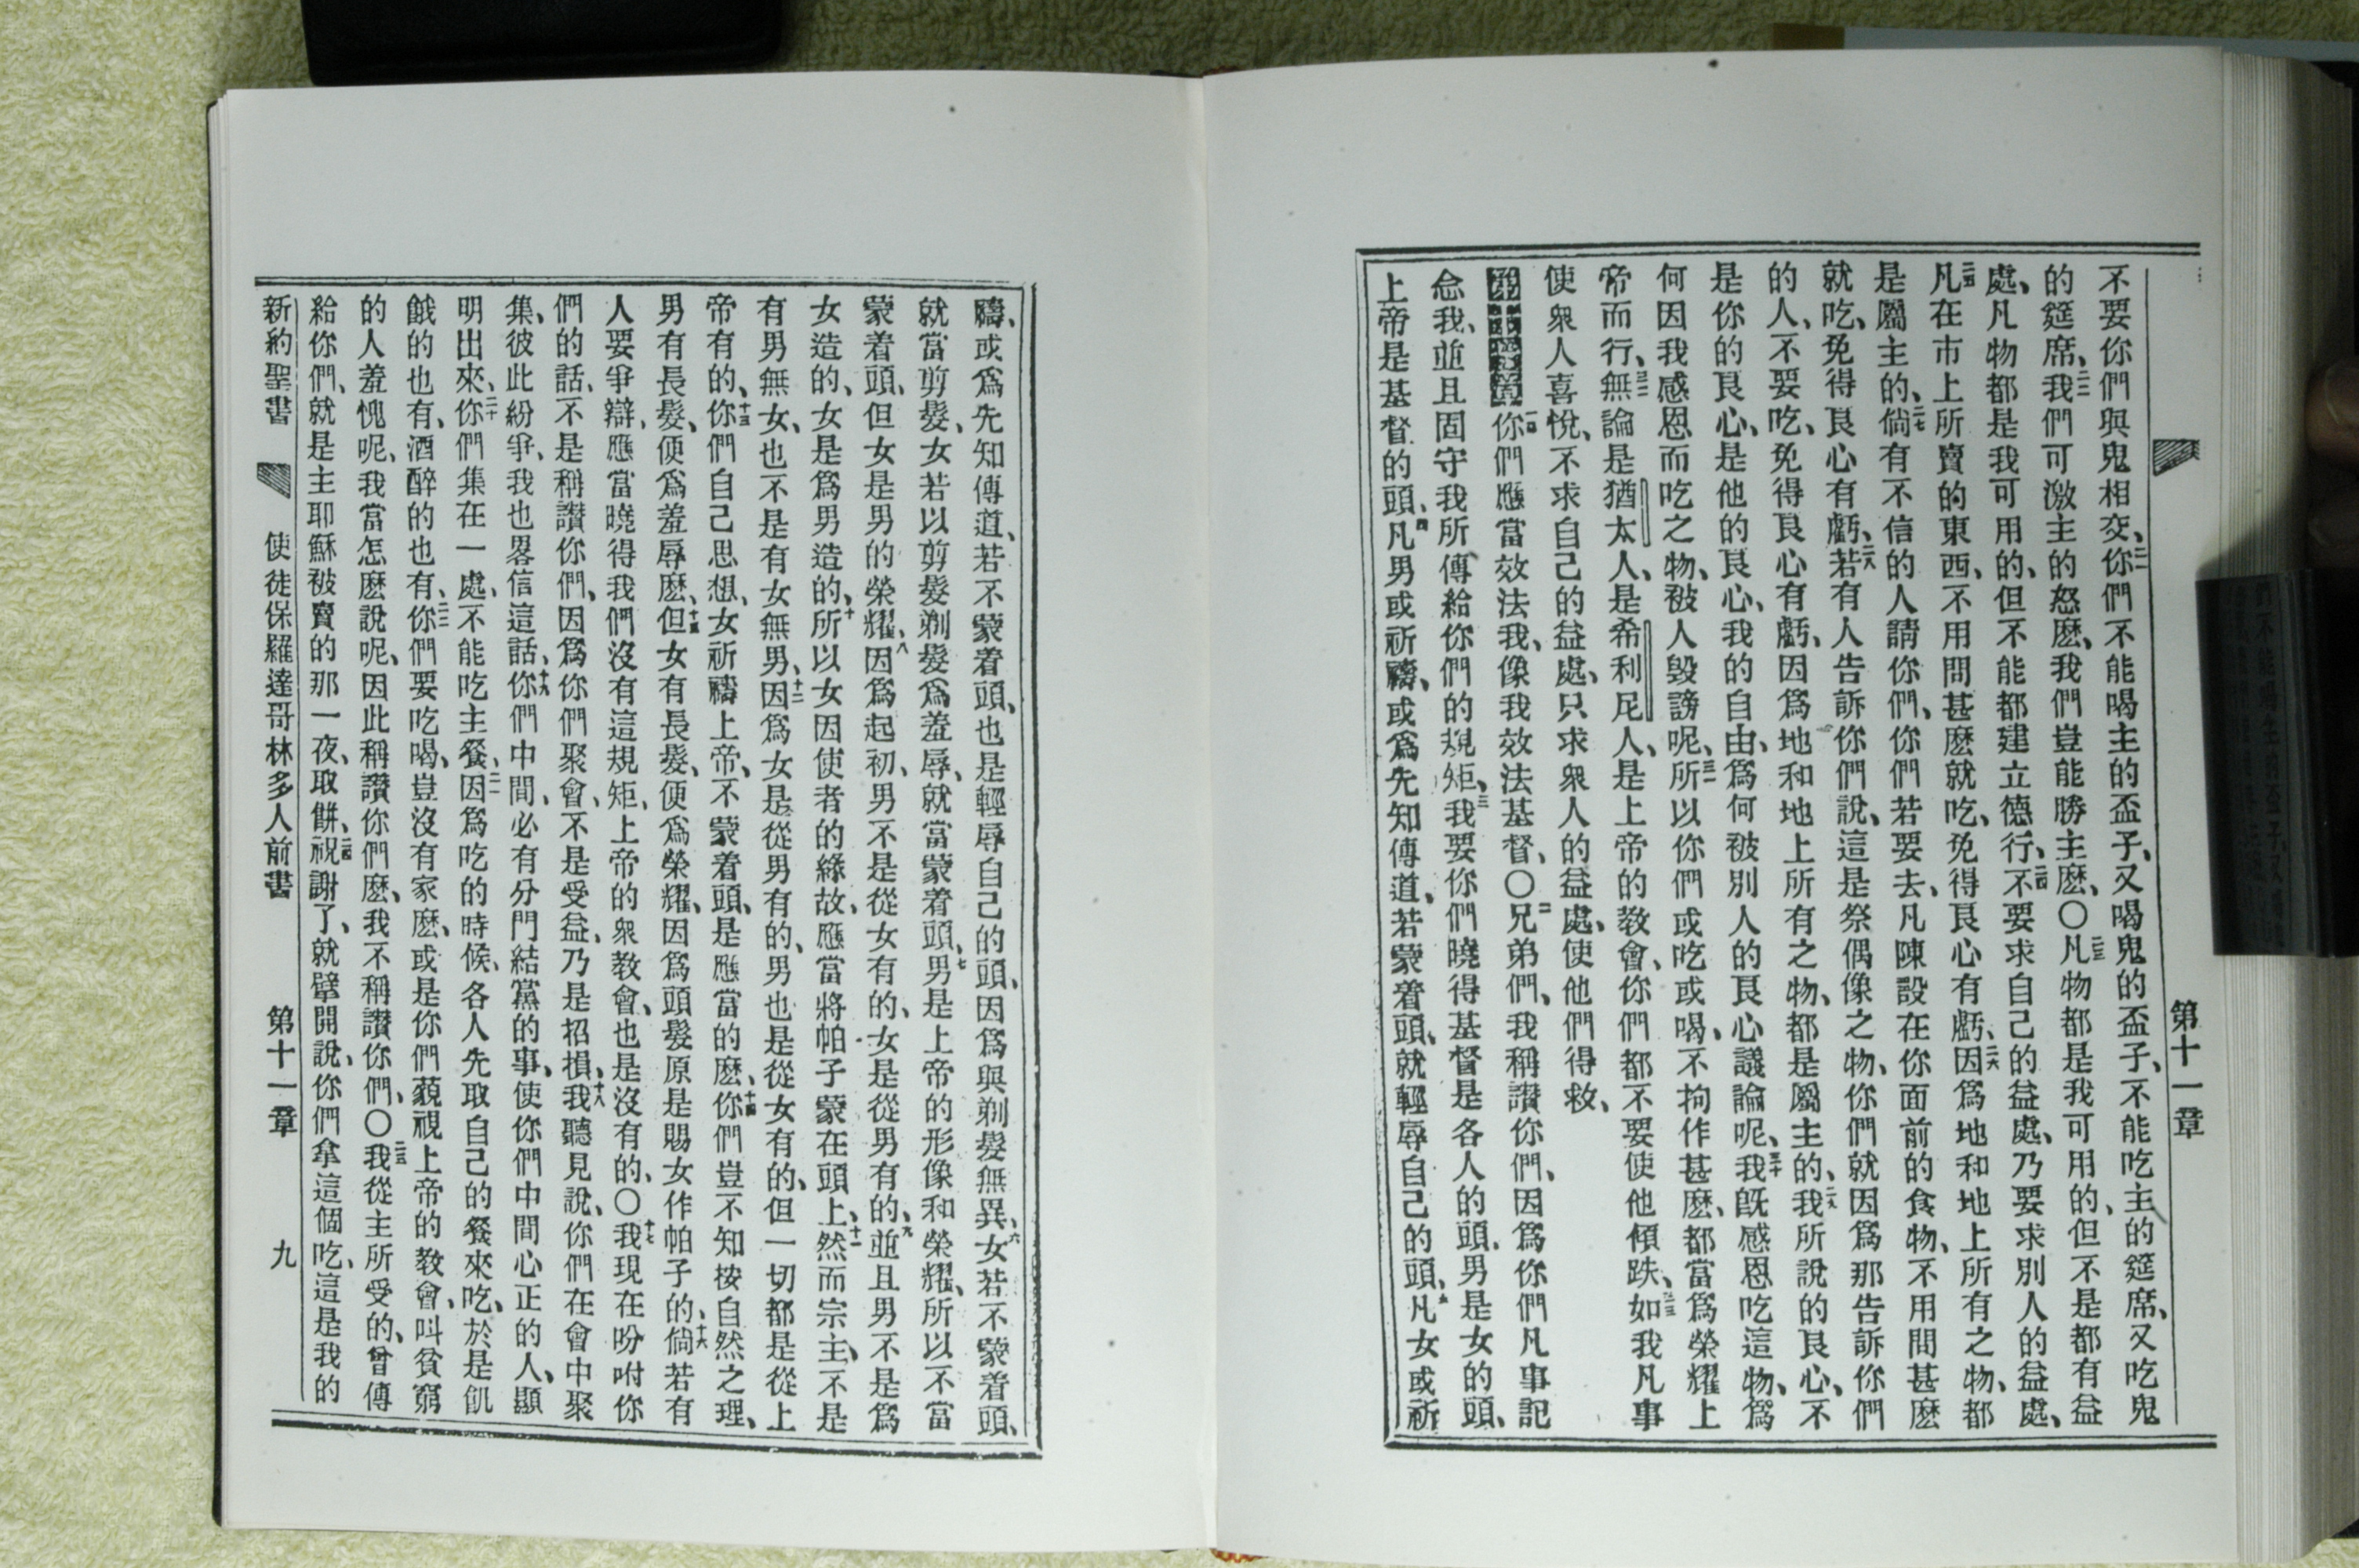 第十一章
不要你們與鬼相交、二一你們不能喝主的盃子、又喝鬼的盃子、不能吃主的筵席、又吃鬼
的筵席、二二我們可激主的怒麽、我們豈能勝主麽、〇二三凡物都是我可用的、但不是都有益
處、凡物都是我可用的、但不能都建立德行、二四不要求自己的益處、乃要求別人的益處、
二五凡在市上所賣的東西、不用問甚麽就吃、免得良心有虧、二六因爲地和地上所有之物、都
是屬主的、二七倘有不信的人請你們、你們若要去、凡陳設在你面前的食物、不用問甚麽
就吃、免得良心有虧、二八若有人告訴你們說、這是祭偶像之物、你們就因爲那告訴你們
的人、不要吃、免得良心有虧、因爲地和地上所有之物、都是屬主的、二九我所說的良心、不
是你的良心、是他的良心、我的自由、爲何被別人的良心議論呢、三十我旣感恩吃這物、爲
何因我感恩而吃之物、被人毀謗呢、三一所以你們或吃或喝、不拘作甚麽、都當爲榮耀上
帝而行、三二無論是猶太人、是希利尼人、是上帝的教會、你們都不要使他傾跌、三三如我凡事
使衆人喜悅、不求自己的益處、只求衆人的益處、使他們得救、
第十一章一你們應當效法我、像我效法基督、〇二兄弟們、我稱讚你們、因爲你們凡事記
念我、並且固守我所傳給你們的規矩、三我要你們曉得基督是各人的頭、男是女的頭、
上帝是基督的頭、四凡男或祈禱、或爲先知傳道、若蒙着頭、就輕辱自己的頭、五凡女或祈
禱、或爲先知傳道、若不蒙着頭、也是輕辱自己的頭、因爲與剃髮無異、六女若不蒙着頭、
就當剪髮、女若以剪髮剃髮爲羞辱、就當蒙着頭、七男是上帝的形像和榮耀、所以不當
蒙着頭、但女是男的榮耀、八因爲起初、男不是從女有的、女是從男有的、九並且男不是爲
女造的、女是爲男造的、十所以女因使者的緣故、應當將帕子蒙在頭上、十一然而宗主、不是
有男無女、也不是有女無男、十二因爲女是從男有的、男也是從女有的、但一切都是從上
帝有的、十三你們自己思想、女祈禱上帝、不蒙着頭、是應當的麽、十四你們豈不知按自然之理、
男有長髮、便爲羞辱麽、十五但女有長髮、便爲榮耀、因爲頭髮原是賜女作帕子的、十六倘若有
人要爭辯、應當曉得我們沒有這規矩、上帝的衆教會、也是沒有的、〇十七我現在吩咐你
們的話、不是稱讚你們、因爲你們聚會、不是受益、乃是招損、十八我聽見說、你們在會中聚
集、彼此紛爭、我也畧信這話、十九你們中間、必有分門結黨的事、使你們中間心正的人、顯
明出來、二十你們集在一處、不能吃主餐、二一因爲吃的時候、各人先取自己的餐來吃、於是飢
餓的也有、酒醉的也有、二二你們要吃喝、豈沒有家麽、或是你們藐視上帝的教會、叫貧窮
的人羞愧呢、我當怎麽說呢、因此稱讚你們麽、我不稱讚你們、〇二三我從主所受的、曾傳
給你們、就是主耶穌被賣的那一夜、取餅、二四祝謝了、就擘開說、你們拿這個吃、這是我的
新約聖書 使徒保羅達哥林多人前書 第十一章 九